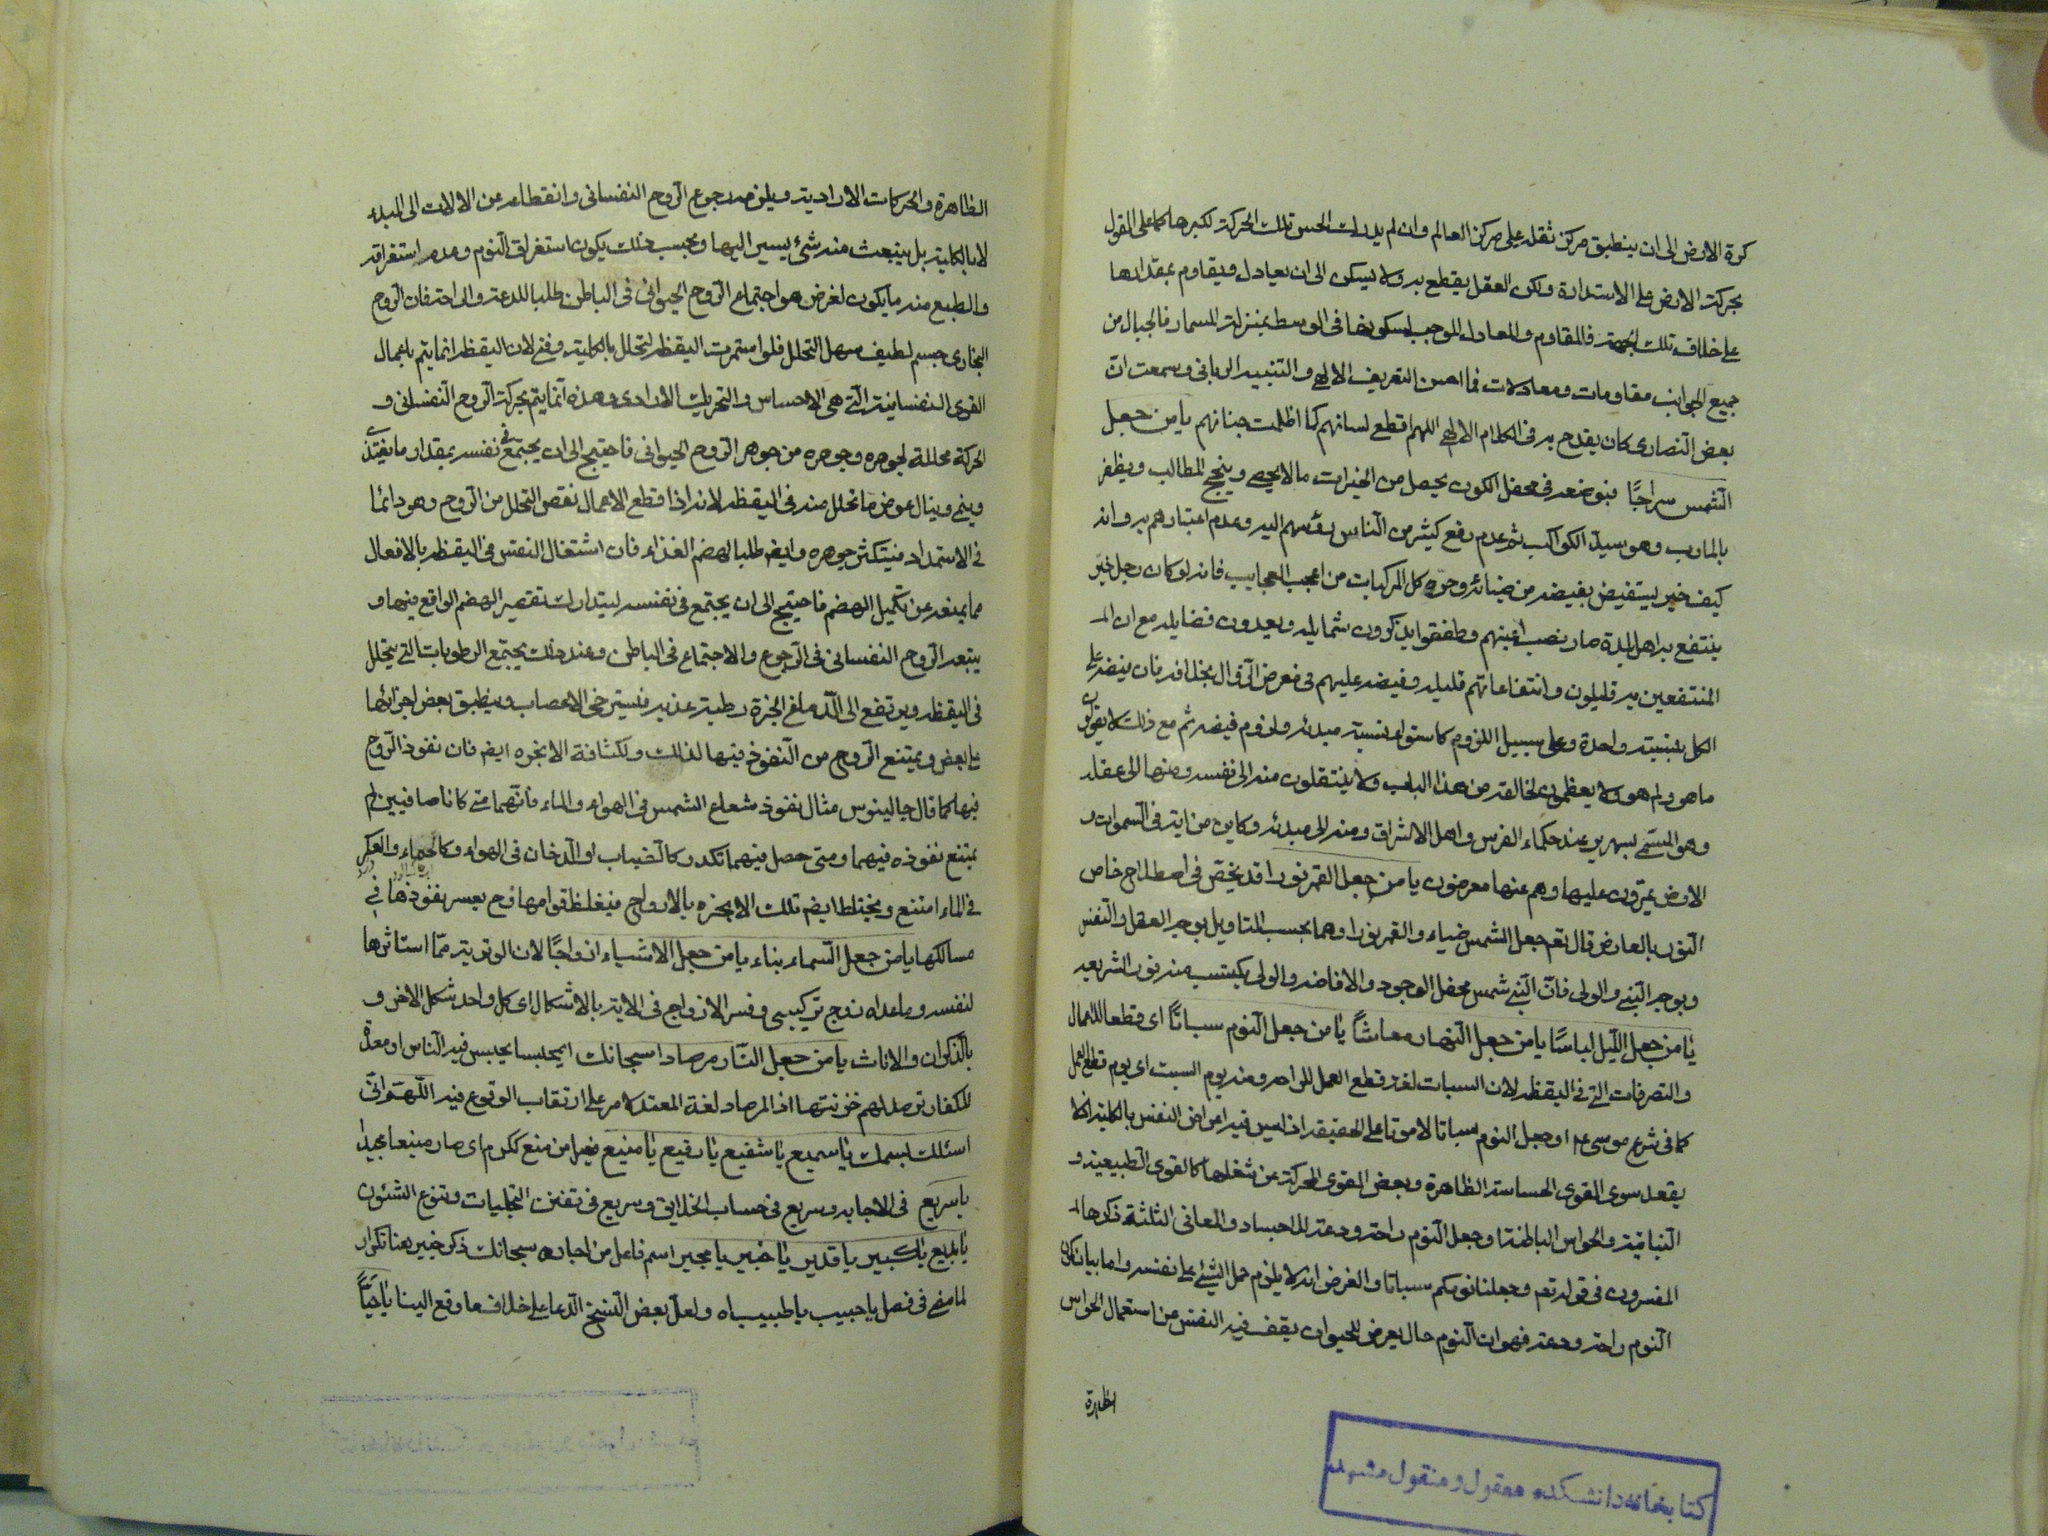 كرة الارض الى ان ينطبق مركز ثقله على مركز العالم وان لم يدرك الحس تلك الحركة لكبرها كما على القول
بحركة الارض على الاستدارة ولكن العقل يقطع به ولا يسكن الى ان يعادل ويقاوم بمقدارها
على خلاف تلك الجهة فالمقاوم والمعادل الموجب لسكونها فى الوسط بمنزلة المسمار فالجبال من
جميع الجوانب مقاومات ومعادلات فما احسن التعريف الالهى والتنبيه الربانى وسمعت ان
بعض النصارى كان يقدح به فى الكلام الالهى اللهم اقطع لسانهم كما اظلمت جنانهم يا من جعل
الشمس سراجًا فبوضعه فى محفل الكون يحصل من الخيرات ما لا يحصى وينجح المطالب ويظفر
بالمارب وهو سيد الكواكب ثم عدم رفع كثير من الناس رؤسهم اليه وعدم اعتبارهم به وانه
كيف خير يستفيض بفيضه من ضيائه وحره كل المركبات من اعجب العجايب فانه لو كان رجل خير
ينتفع به اهل بلدة صار نصب اعينهم وطفقوا يذكرون شمايله ويعدون فضايله مع ان
المنتفعين به قليلون وانتفاعاتهم قليلة وفيضه عليهم فى معرض الزوال بخلافه فان فيضه على
الكل بنسبة واحدة وعلى سبيل اللزوم كاستواء نسبة مبدئه ولزوم فيضه ثم مع ذلك لا يقولون
ما هو ولم هو ولا يعظمون لخالقه من هذا الباب ولا ينتقلون منه الى نفسه ومنها الى عقله
وهو المسمى بسهرير عند حكماء الفرس واهل الاشراق ومنه الى مبدئه وكاين من اية فى السموات و
الارض يمرون عليها وهم عنها معرضون يا من جعل القمر نورا قد يخص فى اصطلاح خاص
النور بالعارض قال تعم جعل الشمس ضياء والقمر نورا وهما بحسب التاويل بوجه العقل والنفس
وبوجه النبى والولى فان النبى شمس محفل الوجود والافاضة والولى يكتسب منه نور الشريعة
يا من جعل الليل لباسًا يا من جعل النهار معاشًا يا من جعل النوم سباتًا اى قطعا للاعمال
والتصرفات التى فى اليقظه لان السبات لغة قطع العمل للراحه ومنه يوم السبت اى يوم قطع العمل
كما فى شرع موسى ع او جعل النوم سباتا لا موتا على الحقيقه اذ ليس فيه اعراض النفس بالكلية اذ لا
يقعد سوى القوى الحساسة الظاهرة وبعض القوى المحركة عن شغلها كالقوى الطبيعية و
النباتية والحواس الباطنة او جعل النوم راحة ودعة للاجساد والمعانى الثلثة ذكرها
المفسرون فى قوله تعم وجعلنا نومكم سباتا والغرض انه لا يلزم حمل الشئ على نفسه واما بيان كون
النوم راحة ودعة فهو ان النوم حال يعرض للحيوان يقف فيه النفس عن استعمال الحواس
الظاهرة
كتابخانه دانشكده معقول و منقول مشهد
الظاهرة والحركات الارادية ويلزمه رجوع الروح النفسانى وانقطاعه عن الالات الى المبدء
لا بالكلية بل ينبعث منه شئ يسير اليها وبحسب ذلك يكون استغراق النوم وعدم استغراقه
والطبيع منه ما يكون لغرض هو اجتماع الروح الحيوانى فى الباطن طلبا للدعة والى احتقان الروح
البخارى جسم لطيف سهل التحلل فلو استمرت اليقظه لتحلل بالكلية وفنى لان اليقظه انما يتم باعمال
القوى النفسانية التى هى الاحساس والتحريك الارادى وهذه انما يتم بحركة الروح النفسانى و
الحركة محللة لجوهره وجوهره من جوهر الروح الحيوانى فاحتيج الى ان يجتمع فى نفسه بمقدار ما يغتذى
وينمو وينال عوض ما تحلل منه فى اليقظه لانه اذا قطع الاعمال نقص التحلل من الروح وهو دائما
فى الاستمداد فيتكثر جوهره وايضا طلبا لهضم الغذاء فان اشتغال النفس فى اليقظه بالافعال
مما يمنعه عن تكميل الهضم فاحتيج الى ان يجتمع فى نفسه ليتدارك تقصير الهضم الواقع فيها و
يتبعه الروح النفسانى فى الرجوع والاجتماع فى الباطن وعند ذلك يجتمع الرطوبات التى تتحلل
فى اليقظه ويرتفع الى الدماغ ابخرة رطبة عذبه فيسترخى الاعصاب وينطبق بعض اجزائها
على بعض ويمتنع الروح من النفوذ فيها لذلك ولكثافة الابخره ايضا فان نفوذ الروح
فيها كما قال جالينوس مثال نفوذ شعاع الشمس فى الهواء والماء فانهما متى كانا صافيين لم
يمتنع نفوذه فيهما ومتى حصل فيهما تكدر كالضباب او الدخان فى الهواء وكالحماء والعكر
فى الماء امتنع ويختلط ايضا تلك الابخره بالارواح فيغلظ قوامها فح يعسر نفوذها فى
مسالكها يا من جعل السماء بناء يا من جعل الاشياء ازواجًا لان الوترية مما استاثرها
لنفسه وما عداه زوج تركيبى وفسر الازواج فى الاية بالاشكال اى كل واحد شكل الاخر و
بالذكران والاناث يا من جعل النار مرصادا سبحانك اى محبسا يحبس فيه الناس او معدة
للكفار ترصد لهم خزنتها اذ المرصاد لغة المعد لامر على ارتقاب الوقوع فيه اللهم انى
اسئلك باسمك يا سميع يا شفيع يا رفيع يا منيع فعيل من منع ككرم اى صار منيعا مجيدا
يا سريع فى الاجابه وسريع فى حساب الخلايق وسريع فى تفنن التجليات وتنوع الشئون
يا بديع يا كبير يا قدير يا خبير يا مجير اسم فاعل من اجاره سبحانك ذكر خبير هنا تكرار
لما مضى فى فصل يا حبيب يا طبيب اه ولعل بعض النسخ الدعا على خلاف ما وقع الينا يا حيًّا